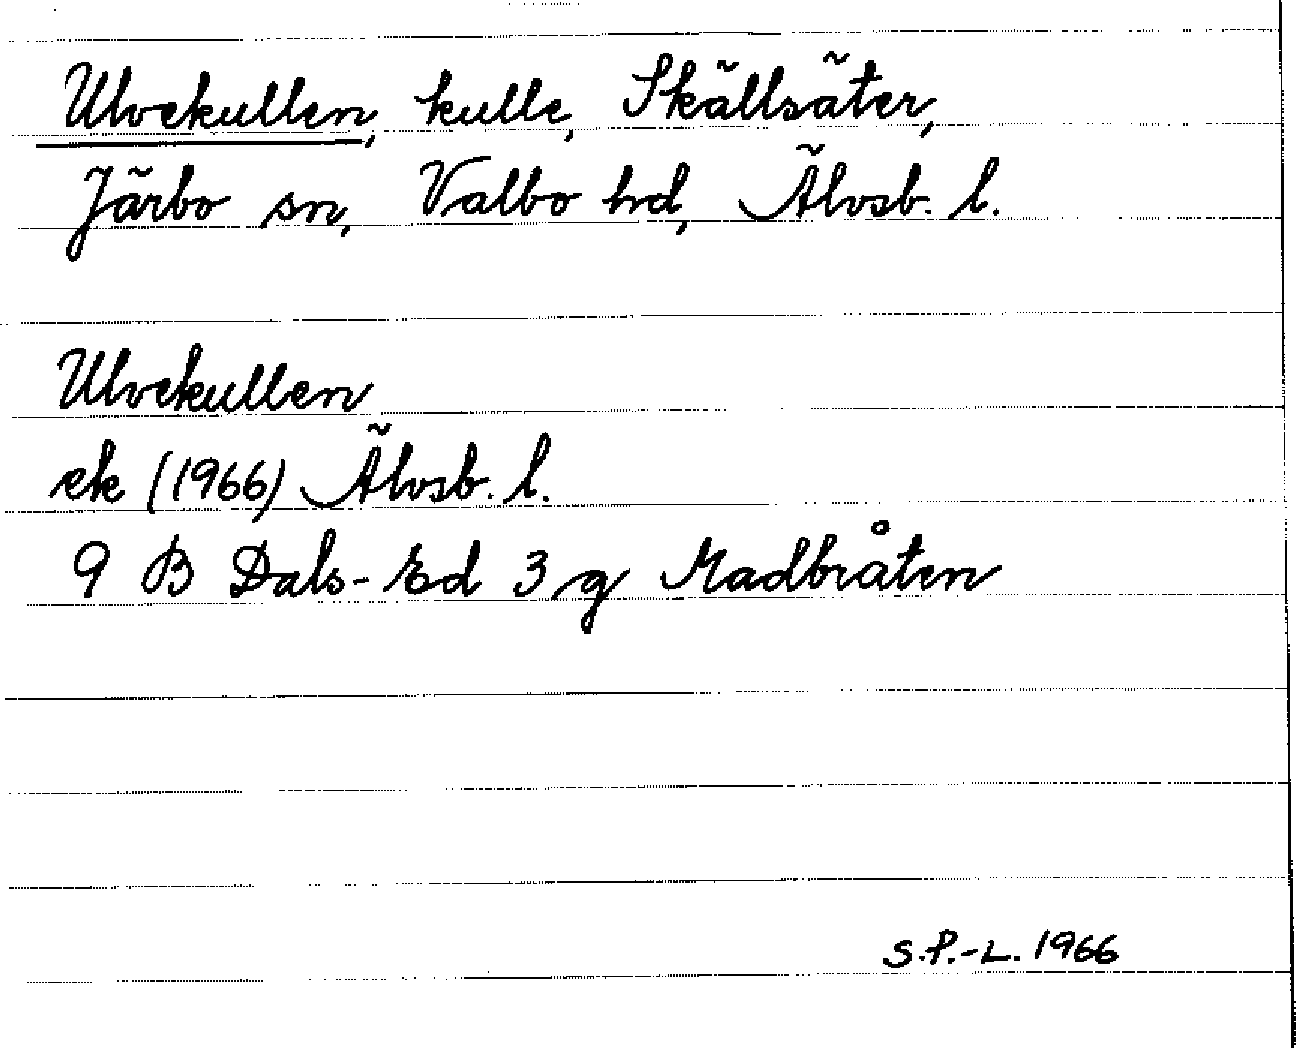 Ulvekullen, kulle, Skällsäter,
Järbo sn, Valbo hd, Älvsb. l.
Ulvekullen
ek (1966) Älvsb. l.
9 B Dals-Ed 3 g Madbråten
S.P.-L. 1966